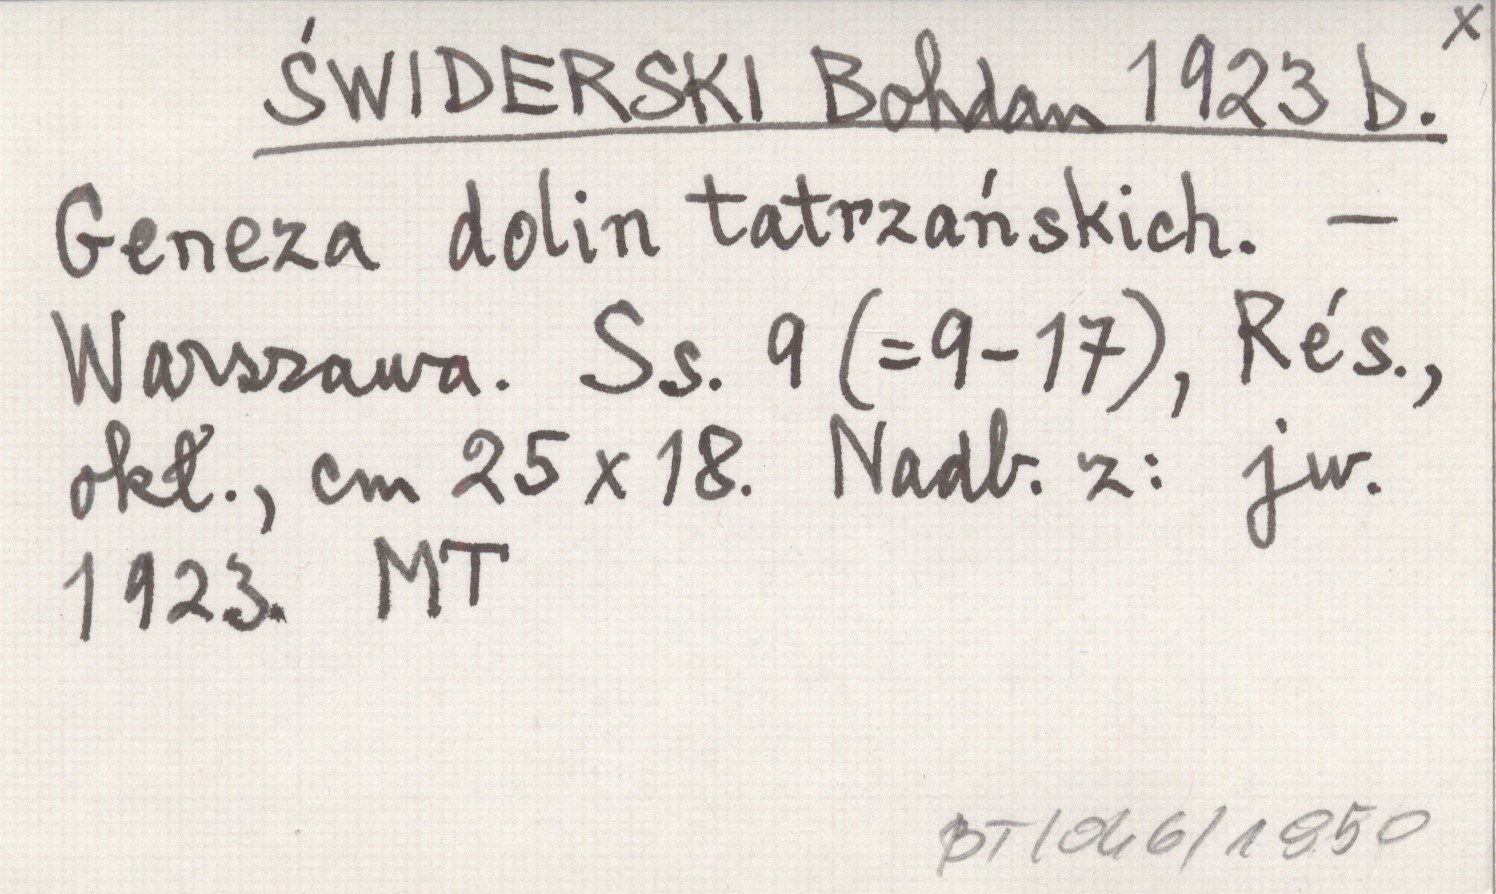 x
ŚWIDERSKI Bohdan 1923 b.
Geneza dolin tatrzańskich. —
Warszawa. Ss. 9 (=9-17), Rés.,
okł., cm 25 x 18. Nadb. z: jw.
1923. MT